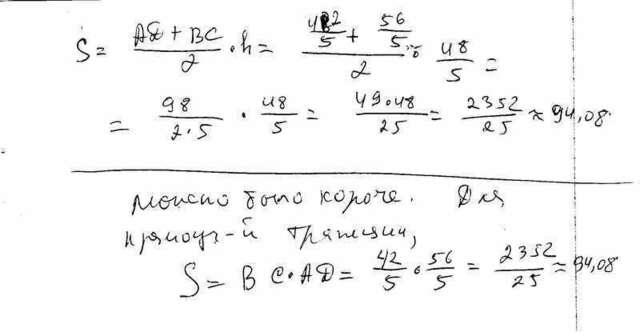 S = (AD + BC)/2 · h = (42/5 + 56/5)/2 · 48/5 =
= 98/(2·5) · 48/5 = 49·48/25 = 2352/25 ≈ 94,08.
Можно было короче. Для
прямоуг-й трапеции,
S = BC·AD = 42/5 · 56/5 = 2352/25 ≈ 94,08